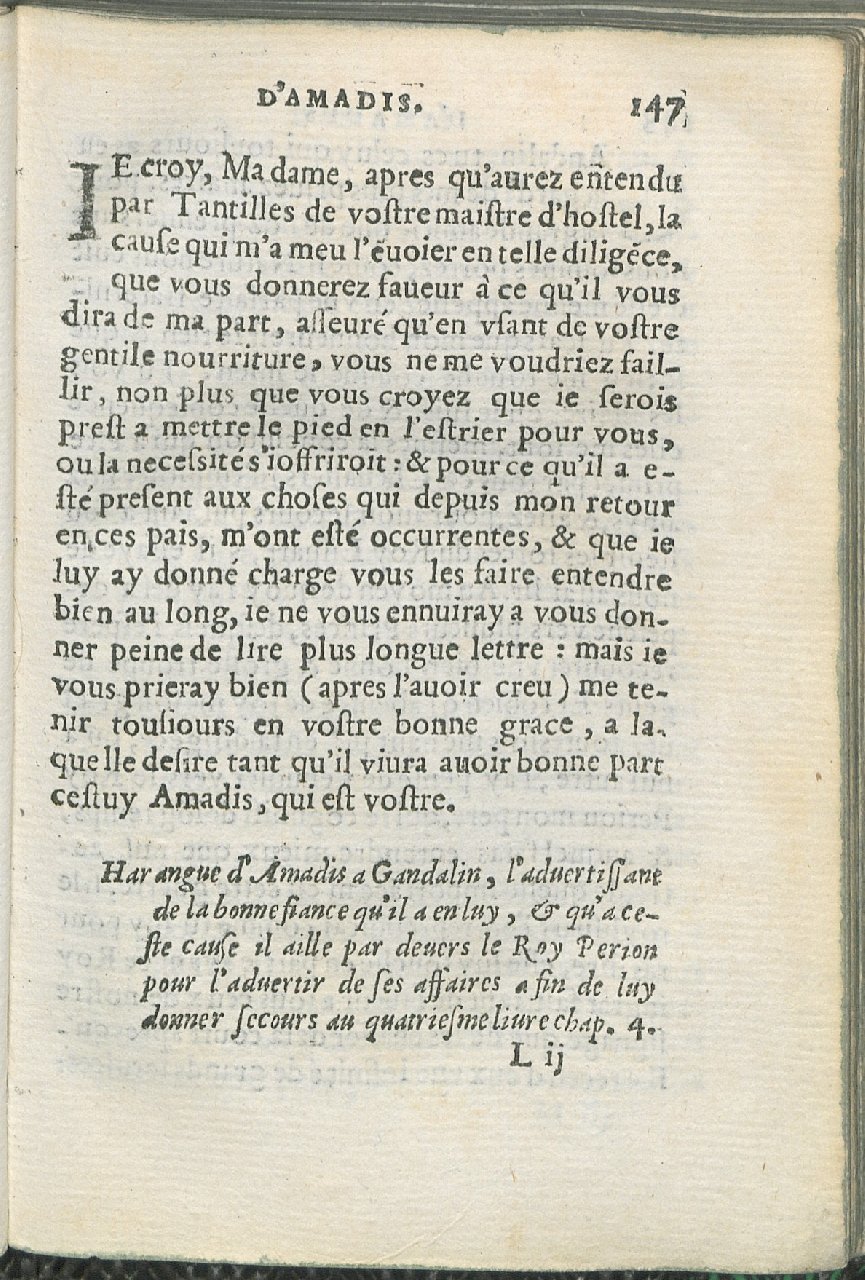 D'AMADIS. 147
IE croy, Madame, apres qu'aurez entendu
par Tantilles de voſtre maiſtre d'hoſtel, la
cauſe qui m'a meu l'ẽuoier en telle diligẽce,
que vous donnerez faueur à ce qu'il vous
dira de ma part, aſſeuré qu'en vſant de voſtre
gentile nourriture, vous ne me voudriez fail-
lir, non plus que vous croyez que ie ſerois
preſt a mettre le pied en l'eſtrier pour vous,
ou la neceſsité s'ioffriroit : & pour ce qu'il a e-
ſté preſent aux choſes qui depuis mon retour
en ces pais, m'ont eſté occurrentes, & que ie
luy ay donné charge vous les faire entendre
bien au long, ie ne vous ennuiray a vous don-
ner peine de lire plus longue lettre : mais ie
vous prieray bien (apres l'auoir creu) me te-
nir touſiours en voſtre bonne grace, a la-
quelle deſire tant qu'il viura auoir bonne part
ceſtuy Amadis, qui eſt voſtre.
Harangue d'Amadis a Gandalin, l'aduertiſſant
de la bonne fiance qu'il a en luy, & qu'a ce-
ſte cauſe il aille par deuers le Roy Perion
pour l'aduertir de ſes affaires afin de luy
donner ſecours au quatrieſme liure chap. 4.
L ij